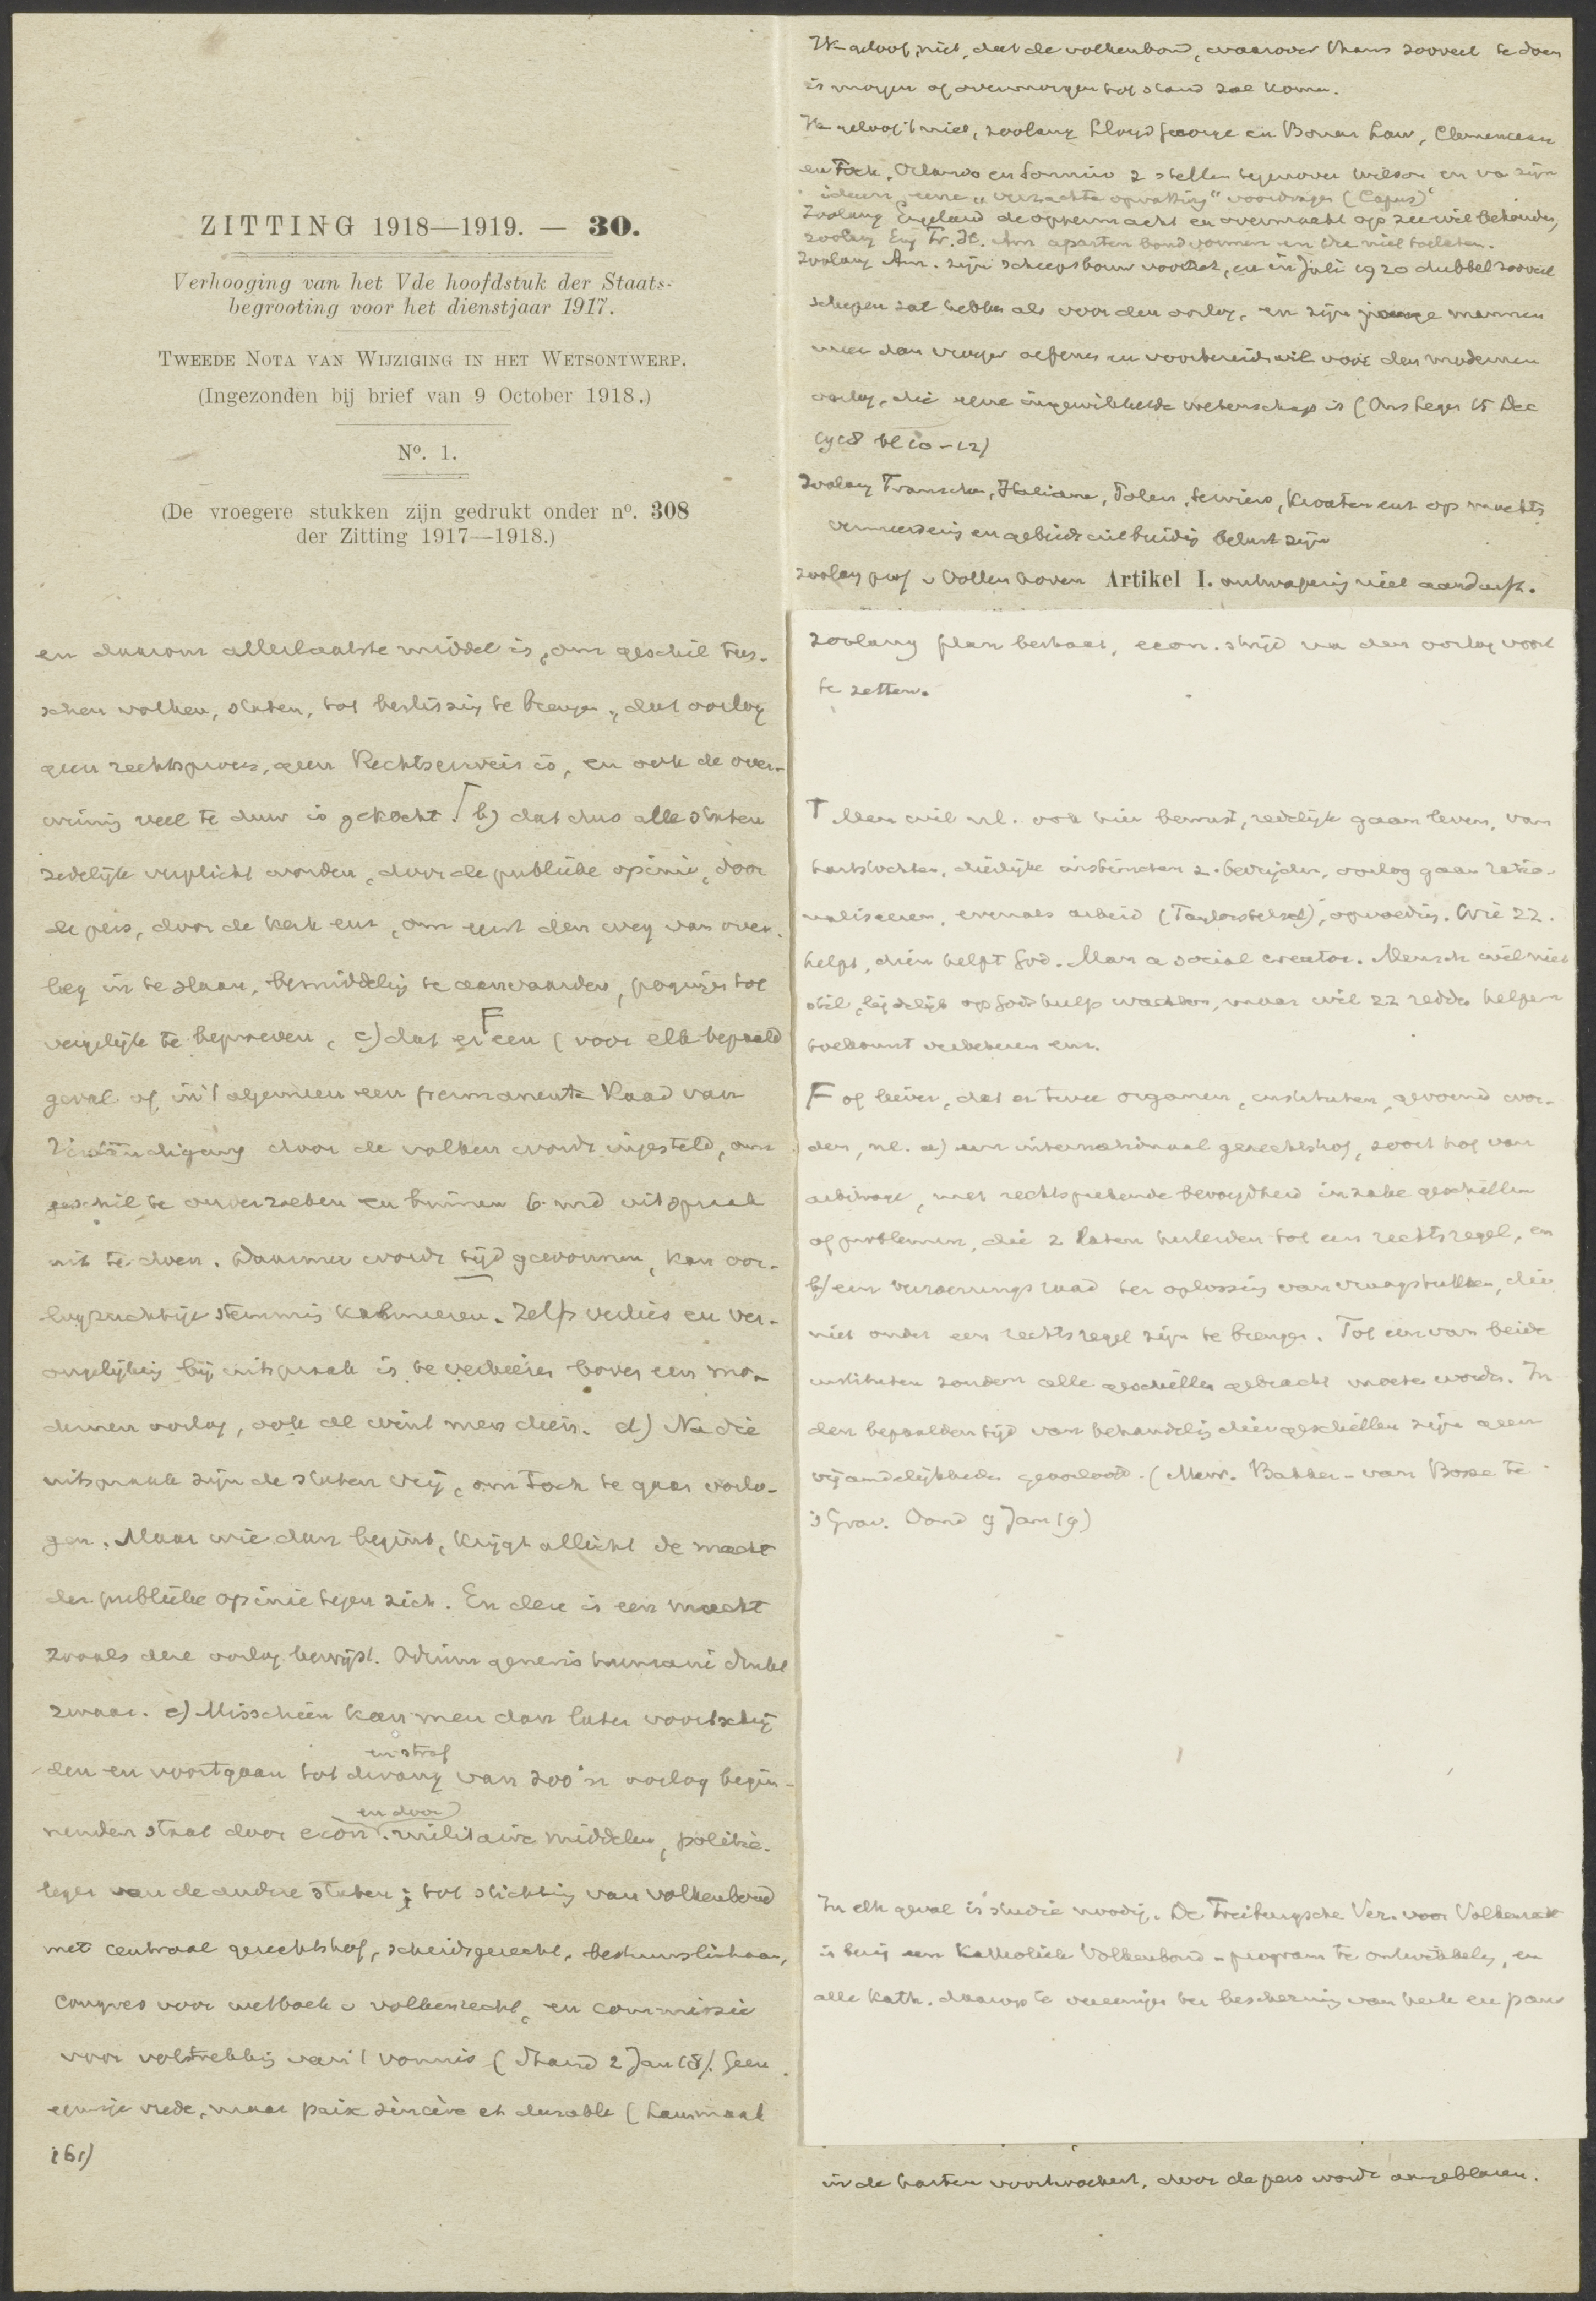 ZITTING 1918—1919. — 30.
Verhooging van het Vde hoofdstuk der Staats-
begrooting voor het dienstjaar 1917.
TWEEDE NOTA VAN WIJZIGING IN HET WETSONTWERP.
(Ingezonden bij brief van 9 October 1918.)
No. 1.
(De vroegere stukken zijn gedrukt onder no. 308
der Zitting 1917—1918.)
en daarom allerlaatste middel is, om geschil tus-
schen volken, staten, tot beslissing te brengen, dat oorlog
geen rechtsproces, geen Rechtsbewijs is, en ook de over-
winnig veel te duur is gekocht. b) dat dus alle staten
zedelijk verplicht worden, door de publieke opinie, door
de pers, door de kerk enz, om eerst den weg van over-
leg in te slaan, bemiddelig te aanvaarden, pogingen tot
vergelijk te beproeven, c) dat er F een (voor elk bepaald
geval of in 't algemeen een permanente Raad van
door de volken wordt ingesteld, om
geschil te onderzoeken en binnen 6 mnd uitspraak
uit te doen. Daarmee wordt tijd gewonnen, kan oor-
logzuchtige stemmig kalmeeren. Zelfs verlies en ver-
ongelijkig bij uitspraak is te verkiezen boven een mo-
dernen oorlog, ook al wint men dien. d) Na die
uitspraak zijn de staten vrij, om toch te gaan oorlo-
gen. Maar wie dan begint, krijgt allicht de macht
der publieke opinie tegen zich. En deze is een macht
zooals deze oorlog bewijst. Odium generis humani drukt
zwaar. e) Misschien kan men dan later voortschrij
den en voortgaan tot dwang en straf van zoo'n oorlog begin-
nenden staat door econ. en door militaire middelen, politie-
leger van de andere staten; tot stichtig van volkenbond
met centraal gerechtshof, scheidsgerecht, bestuurslichaam,
congres voor wetboek v volkenrecht, en commissie
voor voltrekkig van 't vonnis (Stand 2 Jan 18). Geen
vrede, maar paix sincère et durable (
161)
Ik geloof niet, dat de volkenbond, waarover thans zooveel te doen
is morgen of overmorgen tot stand zal komen.
Ik geloof 't niet, zoolang Lloyd George en Bonar Law, Clemenceau
en Foch, Orlando en Sonnino z stellen tegenover Wilson en va zijn
ideeen, eene "verzachte opvatting" voordragen (Capus)
Zoolang Engeland de oppermacht en overmacht op zee wil behouden,
zoolang Eng Fr. It. Am aparten bond vormen en die niet toelaten.
Zoolang Am. zijn scheepsbouw voortzet, en in Juli 1920 dubbel zooveel
schepen zal hebben als voor den oorlog, en zijn jonge mannen
meer dan vroeger oefenen en voorbereiden wil voor den modernen
oorlog, die eene ingewikkelde wetenschap is (Ons Leger 15 Dec
1918 bl 10-12)
Zoolang Franschen, Italianen, Polen, Serviers, Kroaten enz op machts
vermeerderig en gebiedsuitbreidig belust zijn
zoolang prof v Vollenhoven Artikel I. ontwapenig niet aandurft.
zoolang plan bestaat, econ. strijd na den oorlog voort
te zetten.
Men wil nl. ook hier bewust, redelijk gaan leven, van
hartstochten, dierlijke instincten z. bevrijden, oorlog gaan ratio-
naliseeren, evenals arbeid (Taylorstelsel), opvoedig. Wie zz.
helpt, dien helpt God. Man a social creator. Mensch wil niet
stil, lijdelijk op Gods hulp wachten, maar wil zz redden helpen
toekomst verbeteren enz.
F of liever, dat er twee organen, instituten, gevormd wor-
den, nl. a) een internationaal gerechtshof, soort hof van
arbitrage, met rechtsprekende bevoegdheid inzake geschillen
of problemen, die z laten herleiden tot een rechtsregel, en
b) een verzoeningsraad ter oplossig van vraagstukken, die
niet onder een rechtsregel zijn te brengen. Tot een van beide
instituten zouden alle geschillen gebracht moeten worden. In
den bepaalden tijd van behandelig dier geschillen zijn geen
vijandelijkheden geoorloofd. (Mevr. Bakker-van Bosse te
's Grav. Avond 9 Jan 19)
In elk geval is studie noodig. De Freiburgsche Ver. voor Volkenrecht
is bezig een Katholiek Volkenbond-program te ontwikkelen, en
alle Kath. daarop te vereenigen ter bescherming van kerk en paus
in de harten voortwoekert, door de pers wordt aangeblazen.